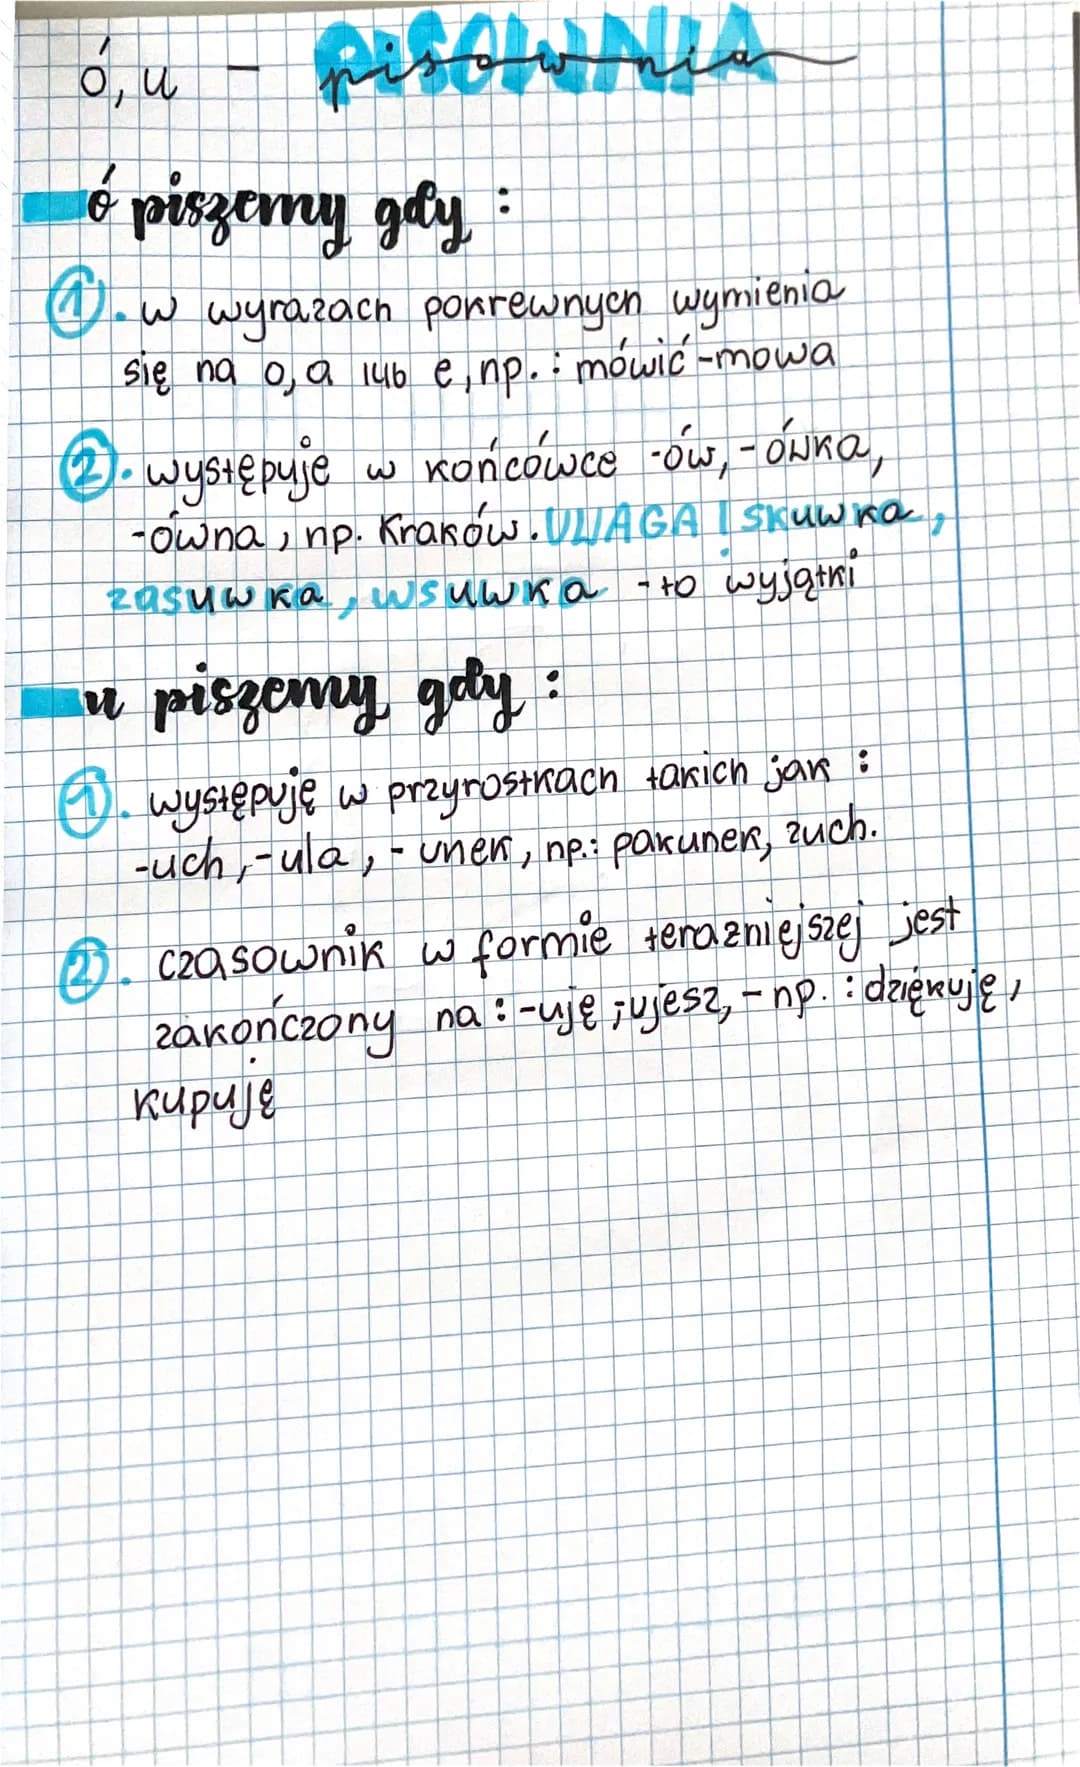 ó, u - pisownia
ó piszemy gdy :
1. w wyrazach pokrewnych wymienia
się na o, a lub e, np. : mówić - mowa
2. występuje w końcówce -ów, - ówka,
-ówna, np. Kraków. UWAGA! skuwka,
zasuwka, wsuwka - to wyjątki
u piszemy gdy :
1. występuję w przyrostkach takich jak :
-uch, -ula, - unek, np.: pakunek, zuch.
2. czasownik w formie terazniejszej jest
zakończony na : -uję ;ujesz, - np. : dziękuję,
kupuję